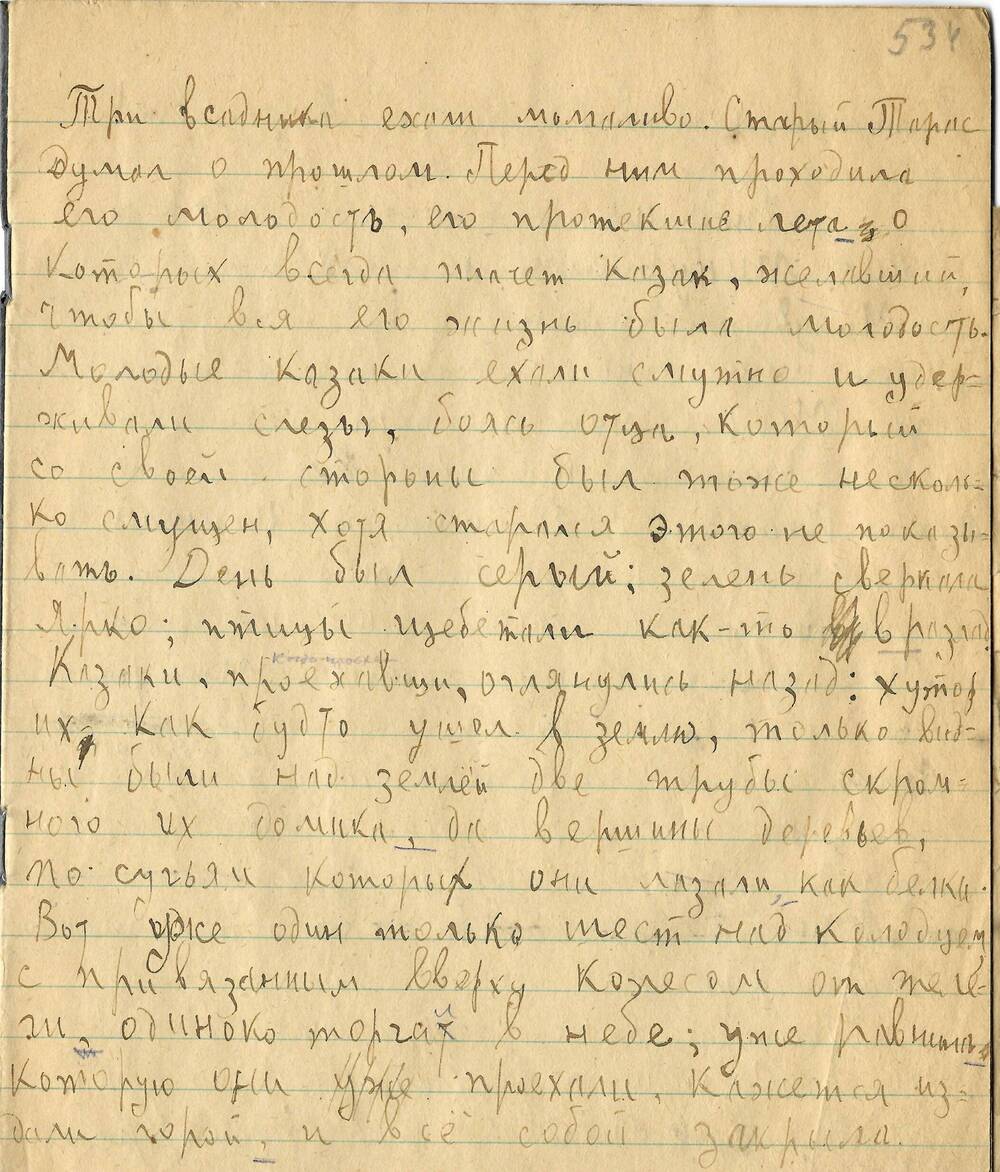 534
Три всадника ехали молчаливо. Старый Тарас
думал о прошлом. Перед ним проходила
его молодость, его протекшие лета, о
которых всегда плачет казак, желавший,
чтобы вся его жизнь была молодость.
Молодые казаки ехали смутно и удер=
живали слезы, боясь отца, который
со своей стороны был тоже несколь=
ко смущен, хотя старался этого не показы=
вать. День был серый; зелень сверкала
ярко; птицы щебетали как-то в разлад.
Казаки, проехавши, оглянулись назад: хутор
их как будто ушел в землю, только вид=
ны были над землёй две трубы скром=
ного их домика, да вершины деревьев,
по сучьям которых они лазали, как белки.
Вот уже один только шест над колодцем
с привязанным вверху колесом от теле=
ги, одиноко торчит в небе; уже равнина,
которую они проехали, кажется из=
дали горой, и всё собой закрыла.